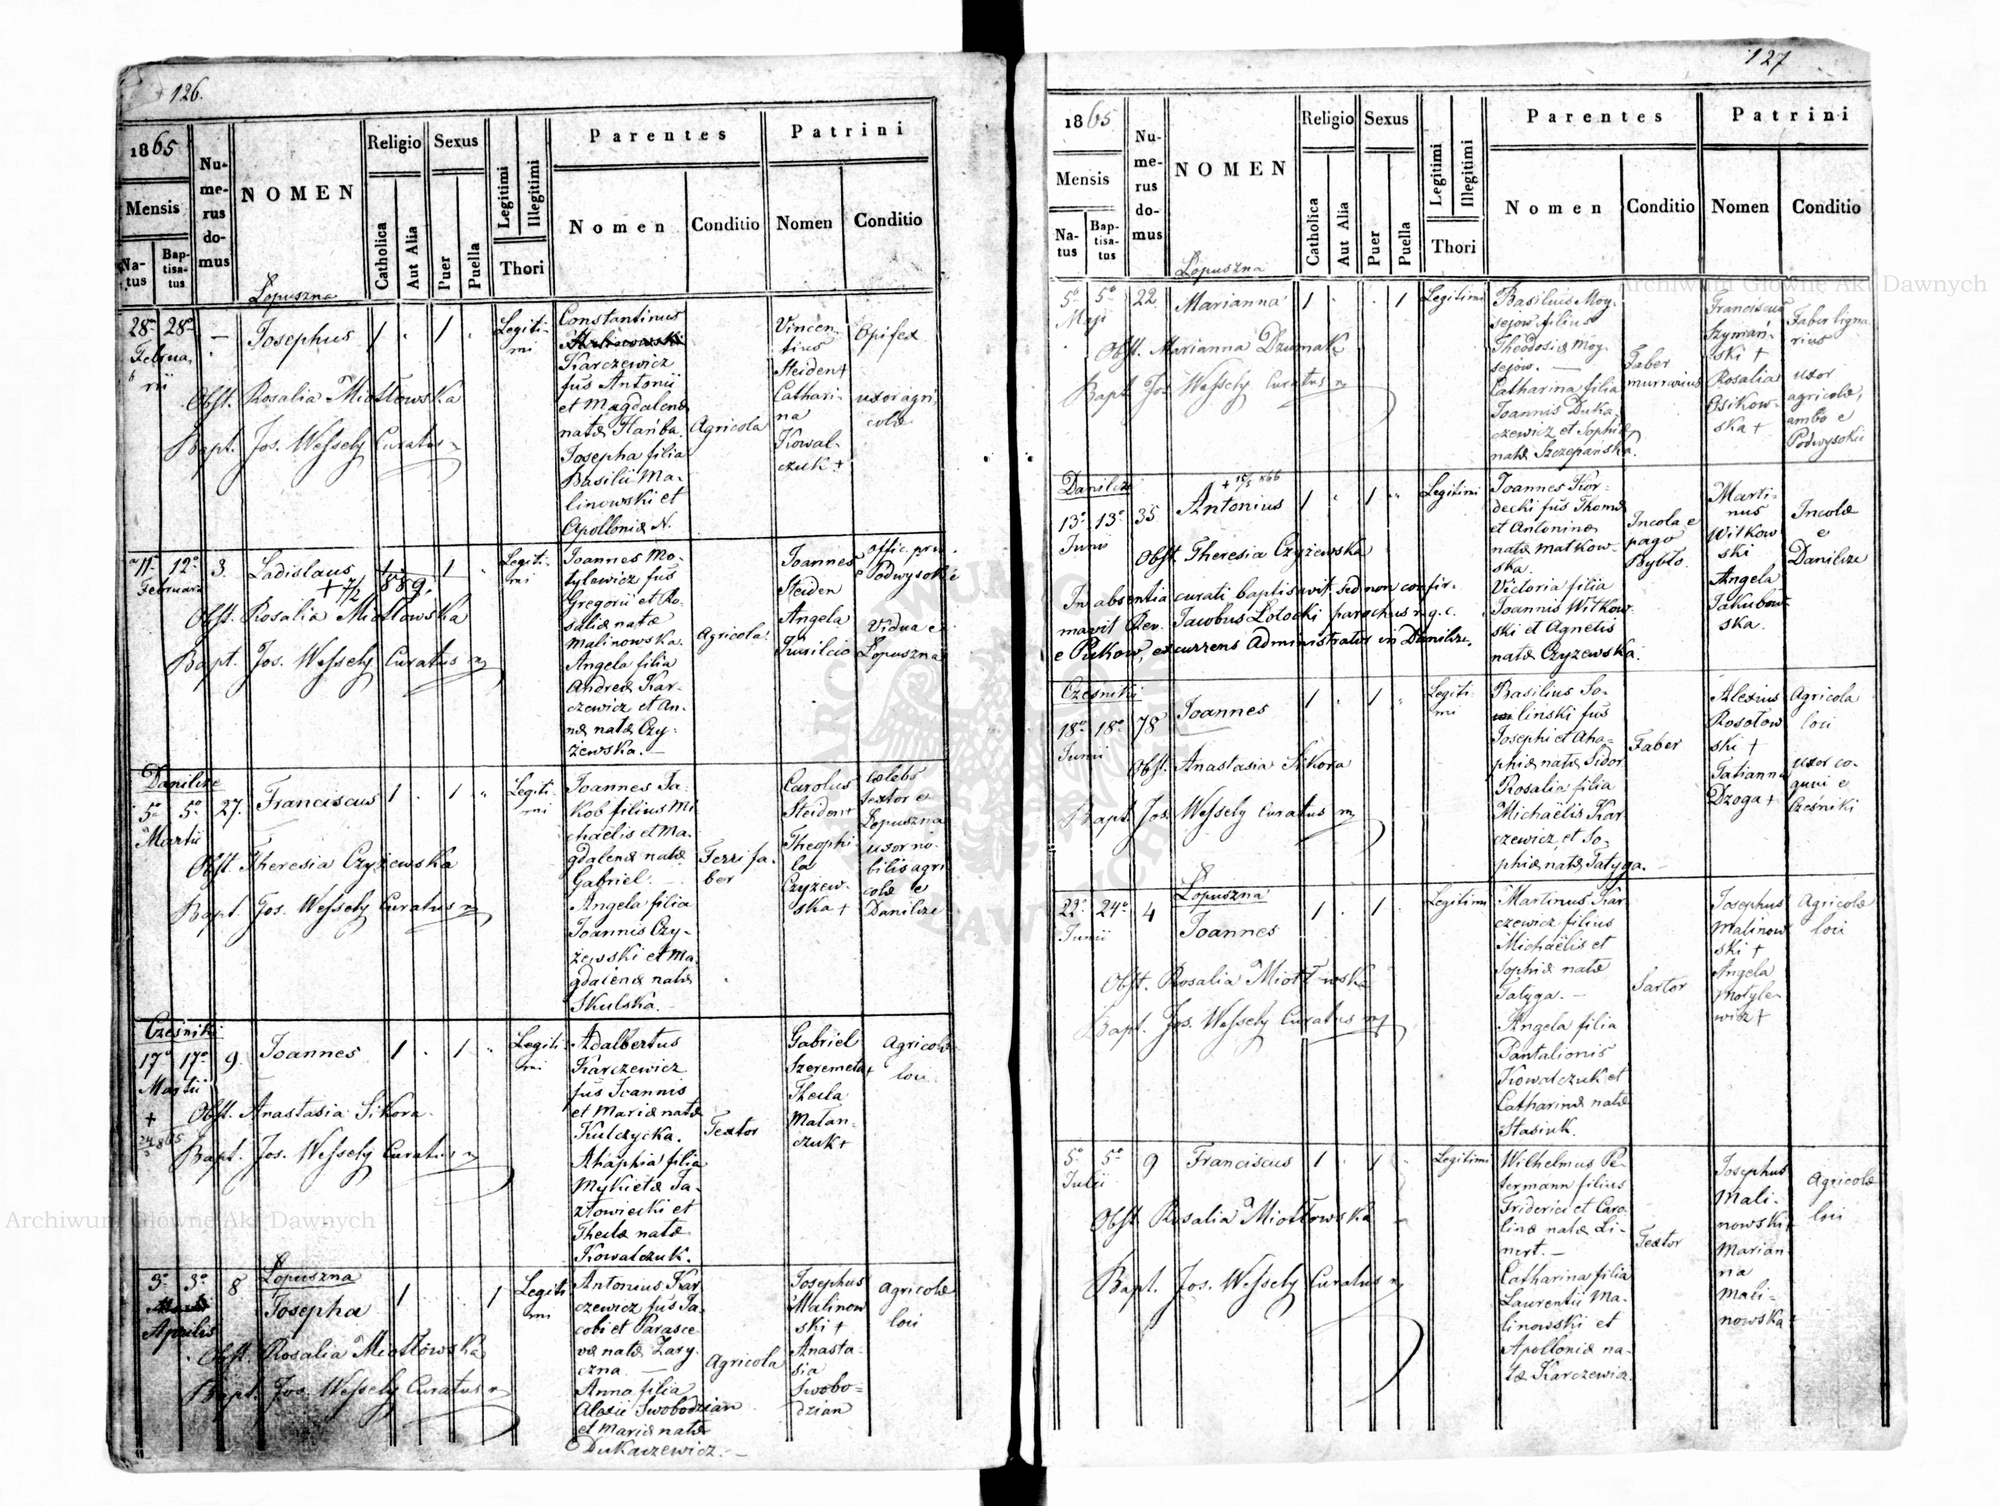 126.
1865
Mensis
Na-
tus
Bap-
tisa-
tus
Nu-
me-
rus
do-
mus
NOMEN
Religio
Catholica
Aut Alia
Sexus
Puer
Puella
Legitimi
Illegitimi
Thori
Parentes
Nomen
Conditio
Patrini
Nomen
Conditio
Łopuszna
28a 28a — Josephus 1 . 1 . Legiti-
mi
Februa
rii
Obst. Rosalia Miotłowska
Bapt. Jos. Wessely Curatus
Constantinus
Karczewicz
fus Antonii
et Magdalenæ
natæ Hariba.
Josepha filia
Basilii Ma-
linowski et
Apolloniæ N.
Agricola
Vincen-
tius
Steiden+
Cathari-
na
Kowal-
czuk +
Opifex
uxor agri
colæ
11a 12a 3. Ladislaus 1 . Legiti-
mi
Februarii
+ 7/2 889.
Obst. Rosalia Miotłowska
Bapt. Jos. Wessely Curatus
Joannes Mo-
tylewicz fus
Gregorii et Ro-
saliæ natæ
Malinowska.
Angela filia
Andreæ Kar-
czewicz et An-
næ natæ Czy-
żewska. —
Agricola
Joannes
Steiden
Angela
Susilcio
offic. priv.
e Podwysokie
Vidua e
Łopuszna
Danilcze
5a 5a 27. Franciscus 1 . 1 " Legiti-
mi
Martii
Obst. Theresia Czyżewska
Bapt. Jos. Wessely Curatus
Joannes Ja-
kob filius Mi
chaelis et Ma-
gdalenæ natæ
Gabriel. —
Angela filia
Joannis Czy-
żewski et Ma
gdalenæ natæ
Skulska. —
Ferri fa-
ber
Carolus
Steiden+
Theophi-
la
Czyżew-
ska +
cœlebs
textor e
Łopuszna
uxor no-
bilis agri
colæ e
Danilcze
Cześniki
17a 17a 9. Joannes 1 . 1 " Legiti-
mi
Martii
+
Obst. Anastasia Sikora.
Bapt. Jos. Wessely Curatus
Adalbertus
Karczewicz
fus Joannis
et Mariæ natæ
Kulczycka.
Ahaphia filia
Mykietæ Ja-
złowiecki et
Theclæ natæ
Kowalczuk.
Textor
Gabriel
Szeremeta+
Thecla
Matan-
czuk+
Agricolæ
loci
3a 3a 8 Łopuszna
Josepha 1 . 1 Legiti
mi
Aprilis
Obst. Rosalia Miotłowska
Bapt. Jos. Wessely Curatus
Antonius Kar
czewicz fus Ja-
cobi et Parasce
væ natæ Zary
czna. —
Anna filia
Alexii Swobodzian
et Mariæ natæ
Dukaczewicz. —
Agricola
Josephus
Malinow
ski +
Anasta-
sia
Swobo-
dzian
Agricolæ
loci
127
1865
Mensis
Na-
tus
Bap-
tisa-
tus
Nu-
me-
rus
do-
mus
NOMEN
Religio
Catholica
Aut Alia
Sexus
Puer
Puella
Legitimi
Illegitimi
Thori
Parentes
Nomen
Conditio
Patrini
Nomen
Conditio
Łopuszna
5a 5a 22. Marianna 1 . . 1 Legitimi
Maji
Obst. Marianna Dziumak
Bapt. Jos. Wessely Curatus
Basilius Moy-
sejow filius
Theodosiæ Moy-
sejow. —
Catharina filia
Joannis Duka-
czewicz et Sophiæ
natæ Szczepańska.
Faber
murrarius
Franciscus
Szymań-
ski +
Rosalia
Osikow-
ska +
Faber ligna
rius
uxor
agricolæ,
ambo e
Podwysokie
Danilcze
13a 13a 35 Antonius 1 . 1 " Legitimi
Junii
Obst. Theresia Czyżewska
In absentia curati baptisavit sed non confir-
mavit Rev. Jacobus Łotocki parochus r. g. c.
e Pukow, excurrens Administrator in Danilcze.
Joannes Kor-
decki fus Thomæ
et Antoninæ
natæ Matkow-
ska.
Victoria filia
Joannis Witkow
ski et Agnetis
natæ Czyżewska.
Incola e
pago
Bybło.
Marti-
nus
Witkow
ski
Angela
Jakubow
ska.
Incolæ
e
Danilcze
Cześniki
18a 18a 78 Joannes 1 . 1 " Legiti-
mi
Junii
Obst. Anastasia Sikora
Bapt. Jos. Wessely Curatus
Basilius So-
linski fus
Josephi et Aha-
phiæ natæ Sidor
Rosalia filia
Michaëlis Kar
czewicz et So-
phiæ natæ Tatyga. —
Faber
Alexius
Rosołow
ski +
Tatianna
Dzoga +
Agricola
loci
uxor co-
qui e
Cześniki
Łopuszna
22a 24a 4 Joannes 1 . 1 . Legitimi
Junii
Obst. Rosalia Miotłowska
Bapt. Jos. Wessely Curatus
Martinus Kar
czewicz filius
Michaëlis et
Sophiæ natæ
Tatyga. —
Angela filia
Pantalionis
Kowalczuk et
Catharinæ natæ
Stasiuk.
Sartor
Josephus
Malinow
ski +
Angela
Motyle-
wicz +
Agricolæ
loci
5a 5a 9 Franciscus 1 . 1 . Legitimi
Julii
Obst. Rosalia Miotłowska
Bapt. Jos. Wessely Curatus
Wilhelmus Pe-
termann filius
Friderici et Caro
linæ natæ Li-
nert. —
Catharina filia
Laurentii Ma-
linowski et
Apolloniæ na-
tæ Karczewicz.
Textor
Josephus
Mali-
nowski
Marian
na
Mali-
nowska
Agricolæ
loci
Archiwum Główne Akt Dawnych
Archiwum Główne Akt Dawnych